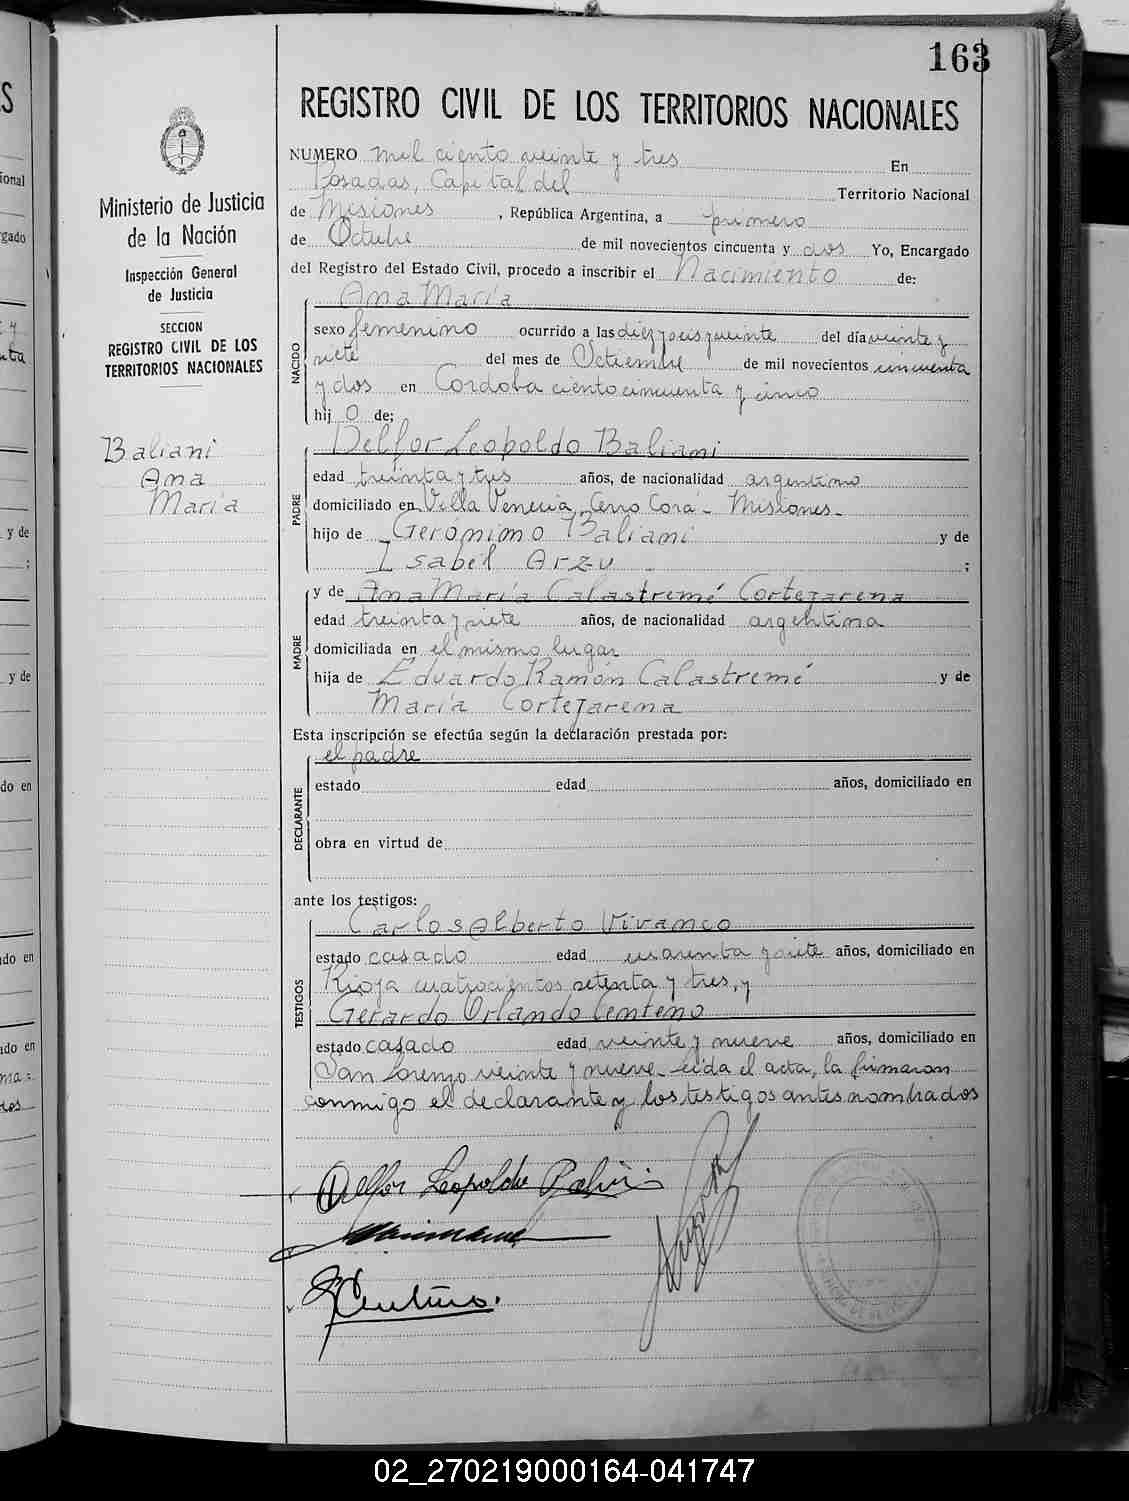 163
REGISTRO CIVIL DE LOS TERRITORIOS NACIONALES
Ministerio de Justicia
de la Nación
Inspección General
de Justicia
SECCION
REGISTRO CIVIL DE LOS
TERRITORIOS NACIONALES
Baliani
Ana
María
NUMERO mil ciento veinte y tres En
Posadas, Capital del Territorio Nacional
de Misiones, República Argentina, a primero
de Octubre de mil novecientos cincuenta y dos Yo, Encargado
del Registro del Estado Civil, procedo a inscribir el Nacimiento de:
NACIDO
Ana María
sexo femenino ocurrido a las diez y seis y veinte del día veinte y
siete del mes de Setiembre de mil novecientos cincuenta
y dos en Córdoba ciento cincuenta y cinco
hij o de:
PADRE
Delfor Leopoldo Baliani
edad treinta y tres años, de nacionalidad argentino
domiciliado en Villa Venecia, Cerro Corá - Misiones -
hijo de Gerónimo Baliani y de
Isabel Arzu ;
MADRE
y de Ana María Calastremé Cortejarena
edad treinta y siete años, de nacionalidad argentina
domiciliada en el mismo lugar
hija de Eduardo Ramón Calastremé y de
María Cortejarena
Esta inscripción se efectúa según la declaración prestada por:
DECLARANTE
el padre
estado edad años, domiciliado en
obra en virtud de
ante los testigos:
TESTIGOS
Carlos Alberto Vivanco
estado casado edad cuarenta y siete años, domiciliado en
Rioja cuatrocientos setenta y tres, y
Gerardo Orlando Centeno
estado casado edad veinte y nueve años, domiciliado en
San Lorenzo veinte y nueve - Leída el acta, la firmaron
conmigo el declarante y los testigos antes nombrados
Delfor Leopoldo Baliani
GCenteno.
02_270219000164-041747